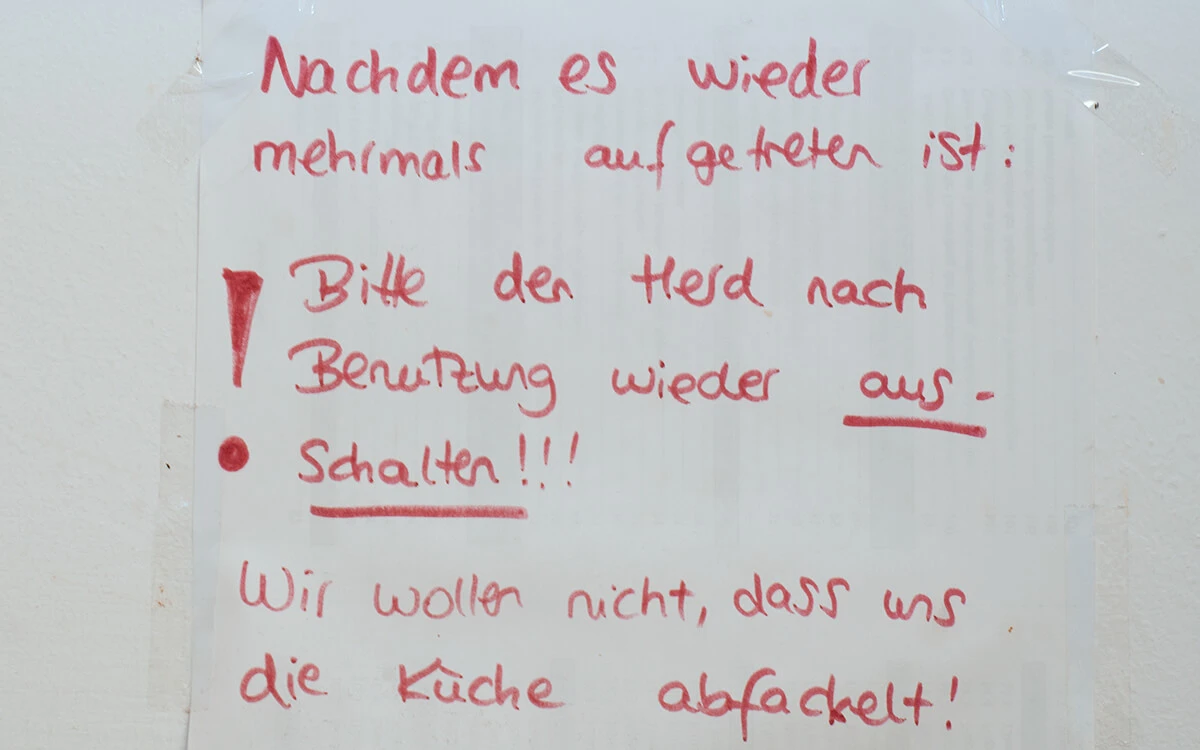 Nachdem es wieder
mehrmals aufgetreten ist:
! Bitte den Herd nach
Benutzung wieder aus-
schalten!!!
Wir wollen nicht, dass uns
die Küche abfackelt!